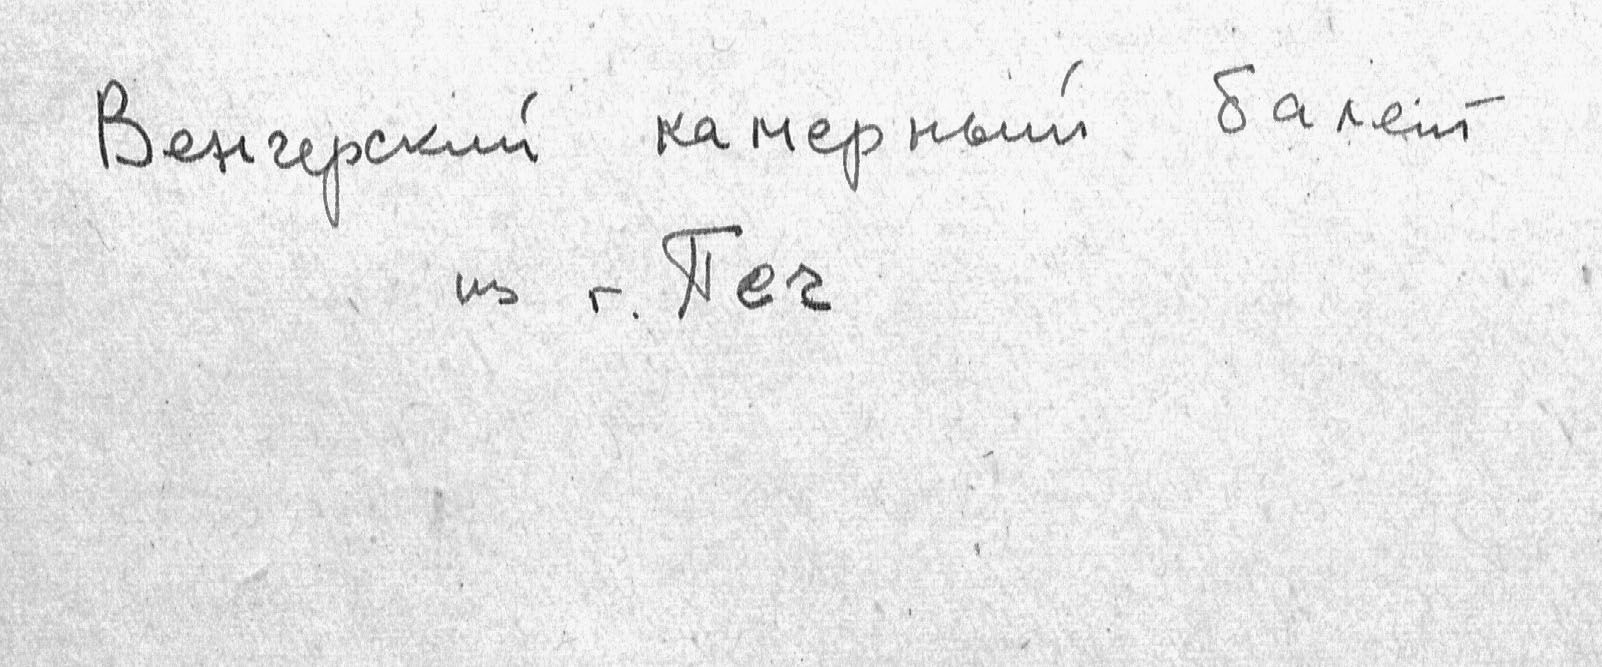 Венгерский камерный балет
из г. Печ